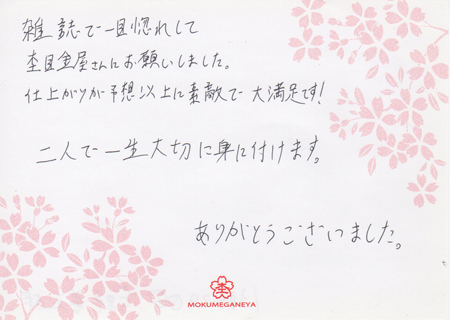 雑誌で一目惚れして
杢目金屋さんにお願いしました。
仕上がりが予想以上に素敵で大満足です!
二人で一生大切に身に付けます。
ありがとうございました。
杢
MOKUMEGANEYA